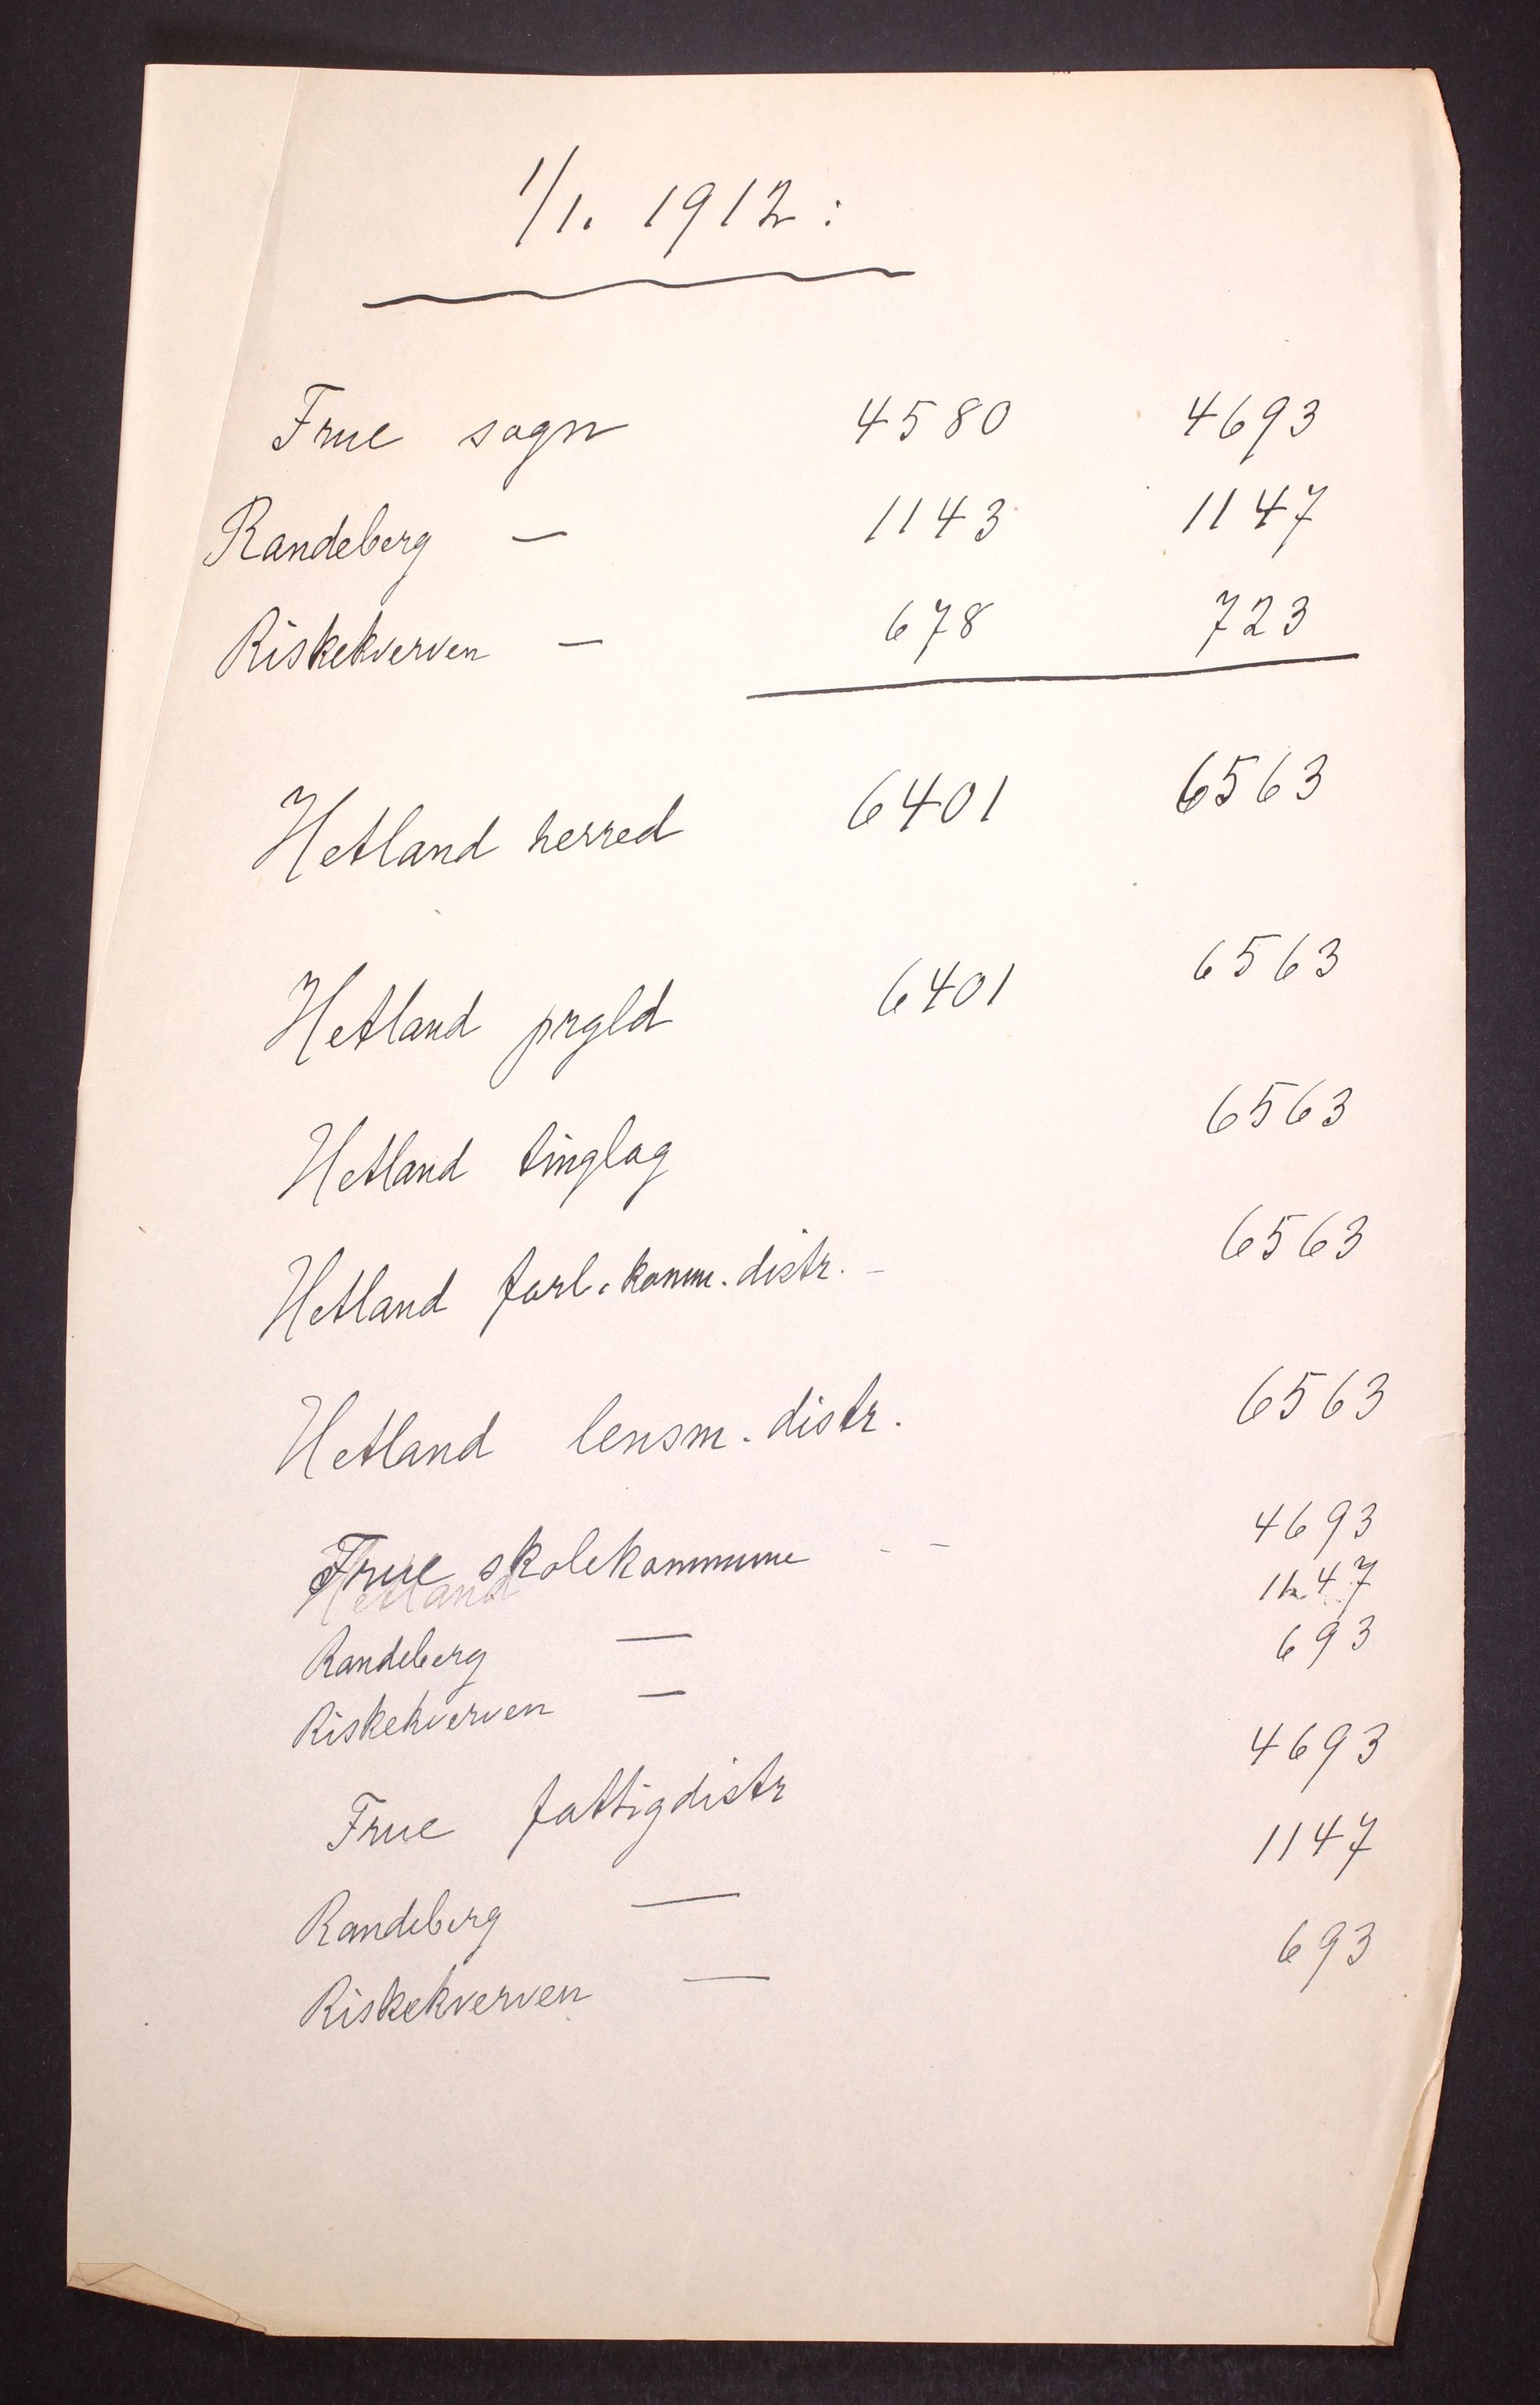 1/1. 1912:
Frue sogn 4580 4693
Randeberg — 1143 1147
Riskekverven — 678 723
Hetland herred 6401 6563
Hetland prgld 6401 6563
Hetland tinglag 6563
Hetland forl. komm. distr. - 6563
Hetland lensm. distr. 6563
Frue skolekommune - - 4693
Hetland
Randeberg — 1147
Riskekverven — 693
Frue fattigdistr 4693
Randeberg — 1147
Riskekverven — 693